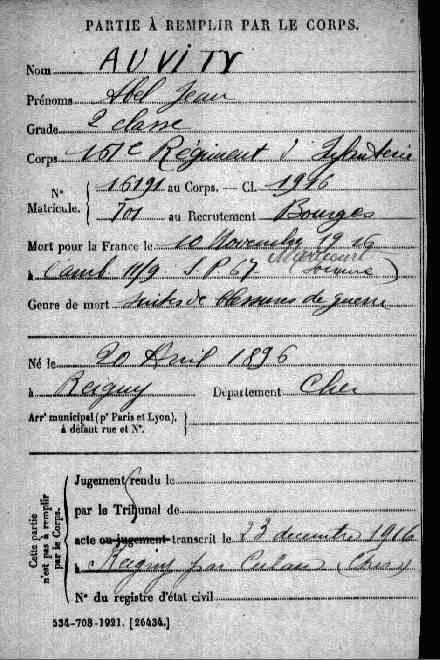 PARTIE À REMPLIR PAR LE CORPS.
Nom AUVITY
Prénoms Abel Jean
Grade 2 classe
Corps 161e Régiment d'Infanterie
N° Matricule. 16191 au Corps. — Cl. 1916
701 au Recrutement Bourges
Mort pour la France le 10 Novembre 1916
à Camb 11/9 S.P. 67 (Somme)
Genre de mort suites de blessures de guerre
Né le 20 Avril 1896
à Reigny Département Cher
Arr' municipal (p' Paris et Lyon),
à défaut rue et N°.
Cette partie
n'est pas à remplir
par le Corps.
Jugement rendu le
par le Tribunal de
acte ou jugement transcrit le 23 décembre 1916
à Reigny par Culan (Cher)
N° du registre d'état civil
534-708-1921. [26434.]